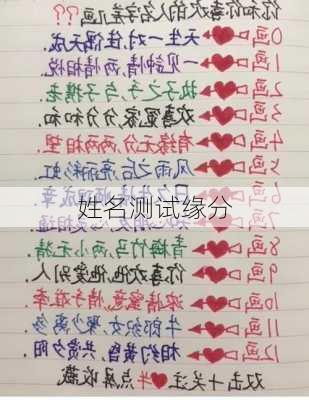 你和你喜欢的人名字差几画??
0画 天生一对,佳偶天成.
1画 一见钟情,两情相悦.
2画 执子之手,与子携老.
3画 欢喜冤家,分分和和.
4画 有缘无分,两两相望.
5画 风雨之后,亮丽彩虹.
6画 日久生情,
姓名测试缘分
7画
8画 青梅竹马,两小无猜.
9画 你喜欢他,他爱别人.
10画 浓情蜜意,
11画 牛郎织女,聚少离多.
12画 相约黄昏,共赏夕阳.
双击+关注 点屏收藏